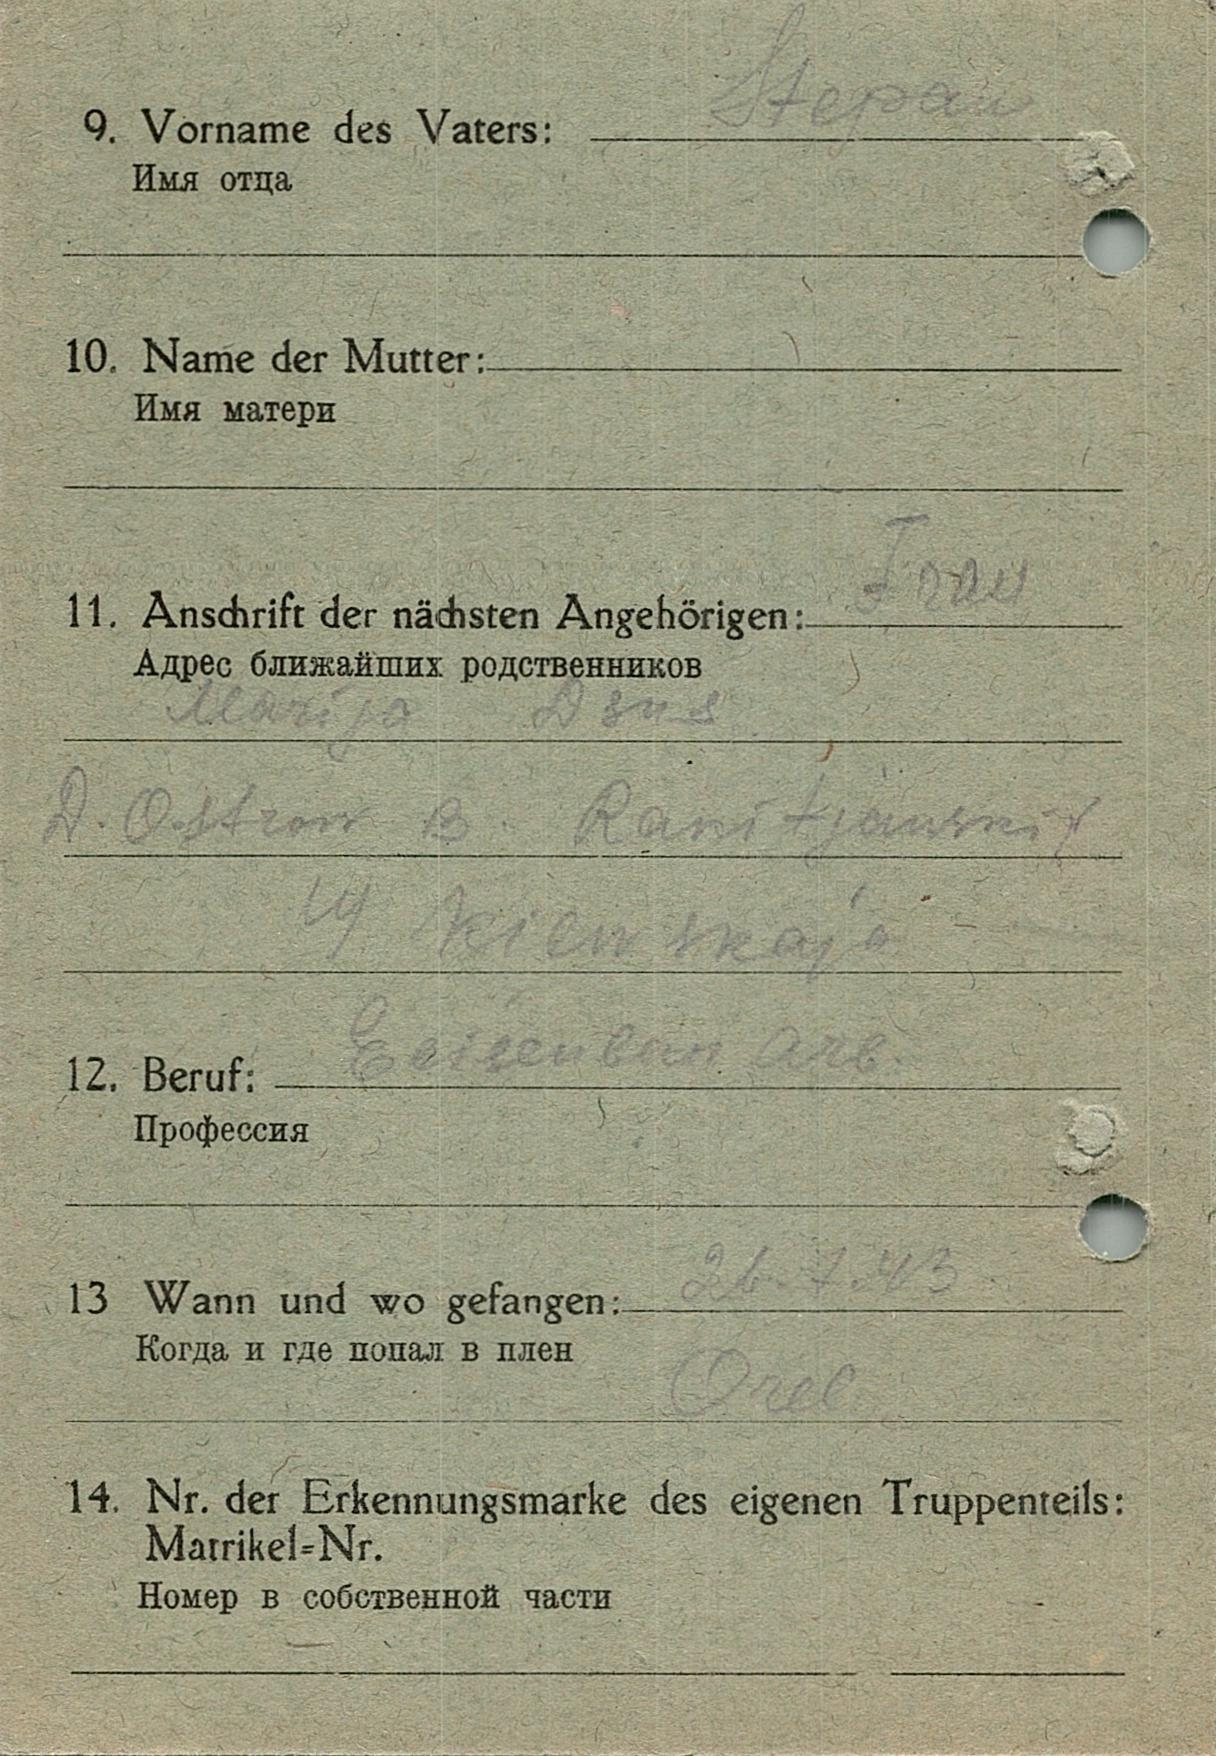 Stepan
9. Vorname des Vaters:
Имя отца
10. Name der Mutter:
Имя матери
Frau
11. Anschrift der nächsten Angehörigen:
Адрес ближайших родственников
Marija Dsus
D. Ostrow B.
Kiewskaja
12. Beruf: Eeisenban Arb.
Профессия
13 Wann und wo gefangen: 26.7.43
Когда и где попал в плен
Orel
14. Nr. der Erkennungsmarke des eigenen Truppenteils:
Matrikel=Nr.
Номер в собственной части